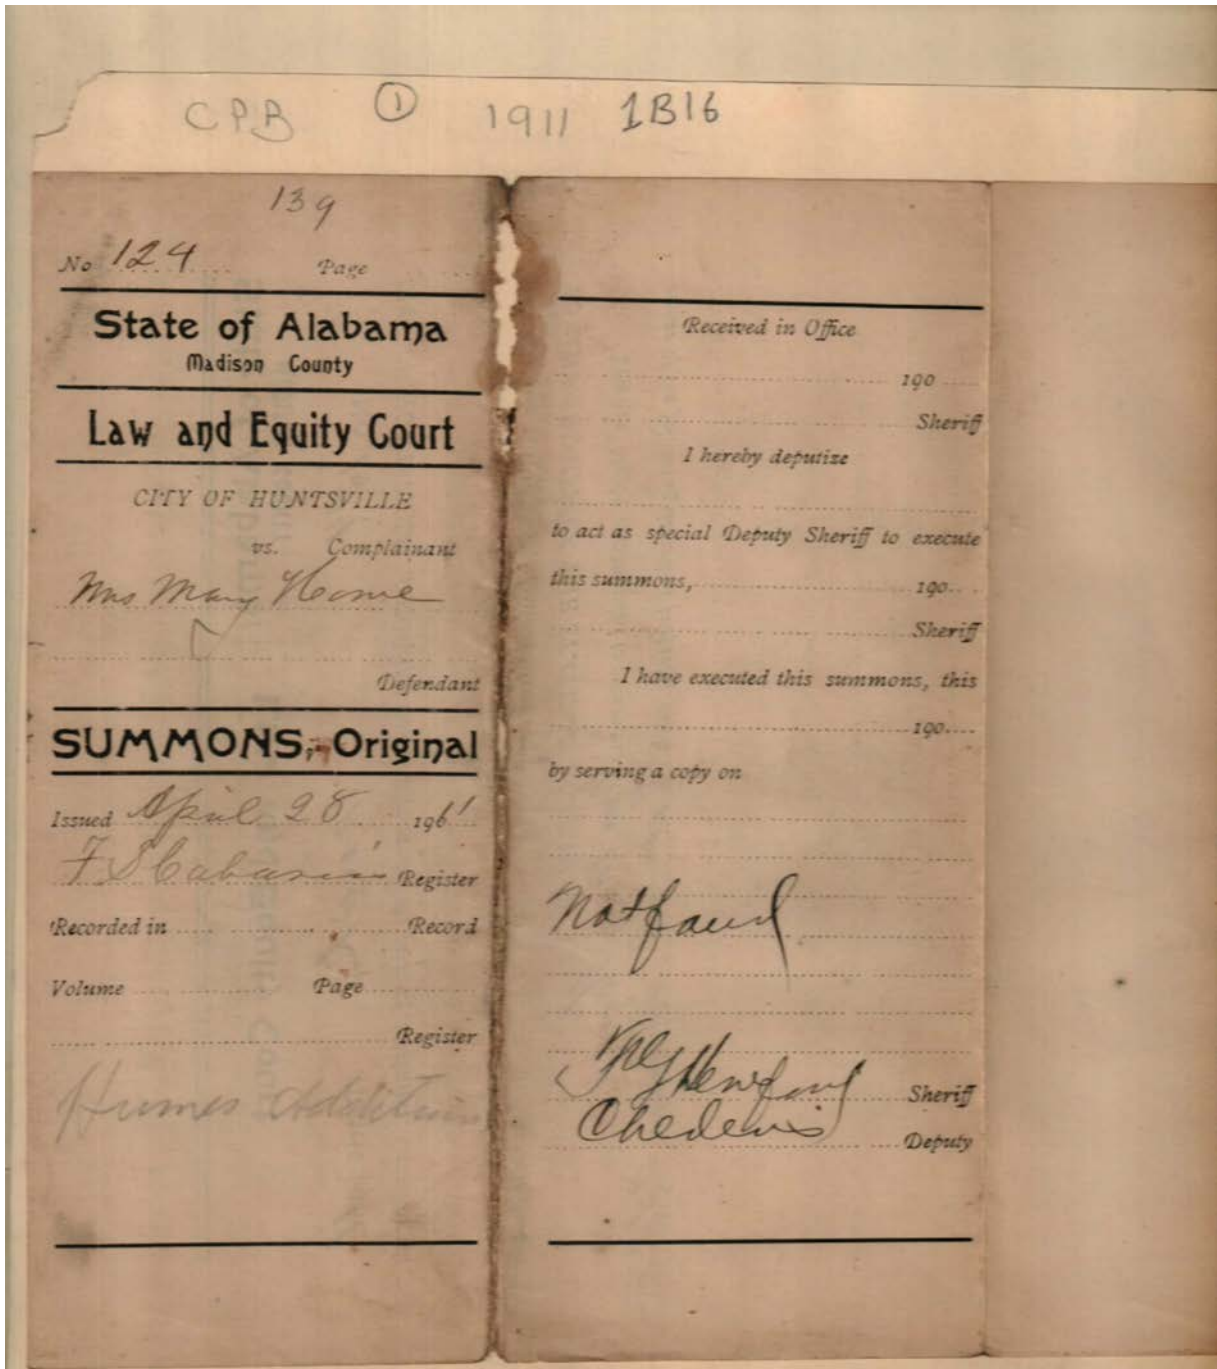 CPB ① 1911 1B16
139
No 124 Page
State of Alabama
Madison County
Law and Equity Court
CITY OF HUNTSVILLE
vs. Complainant
Mrs Mary
Defendant
SUMMONS, Original
Issued April 28 1901
Register
Recorded in Record
Volume Page
Register
Humes Addition
Received in Office
190
Sheriff
I hereby deputize
to act as special Deputy Sheriff to execute
this summons, 190
Sheriff
I have executed this summons, this
190
by serving a copy on
Not found
Sheriff
Deputy